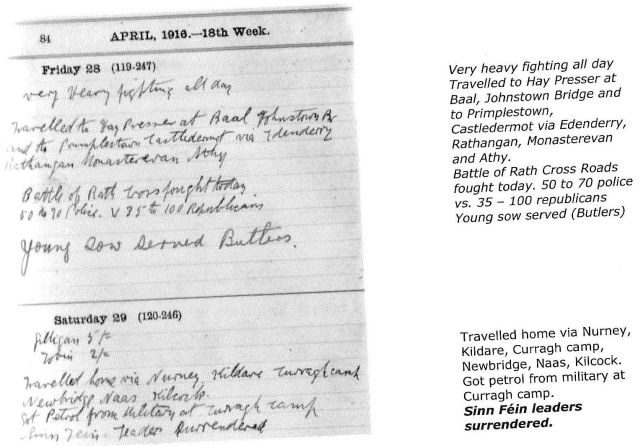 84 APRIL, 1916.—18th Week.
Friday 28 (119-247)
Very Heavy fighting all day
Travelled to Hay Presser at Baal Johnstown Br
and to Prumplestown Castledermot via Edenderry
Rathangan Monasterevan Athy
Battle of Rath Cross fought today.
50 to 70 Police. V 35 to 100 Republicans
Young Sow Served Butlers.
Saturday 29 (120-246)
Gilligan 5/-
Tobin 2/-
Travelled home via Nurney Kildare Curragh camp
Newbridge Naas Kilcock.
Got Petrol from Military at Curragh camp
Sinn Fein Leaders Surrendered
Very heavy fighting all day
Travelled to Hay Presser at
Baal, Johnstown Bridge and
to Primplestown,
Castledermot via Edenderry,
Rathangan, Monasterevan
and Athy.
Battle of Rath Cross Roads
fought today. 50 to 70 police
vs. 35 – 100 republicans
Young sow served (Butlers)
Travelled home via Nurney,
Kildare, Curragh camp,
Newbridge, Naas, Kilcock.
Got petrol from military at
Curragh camp.
Sinn Féin leaders
surrendered.